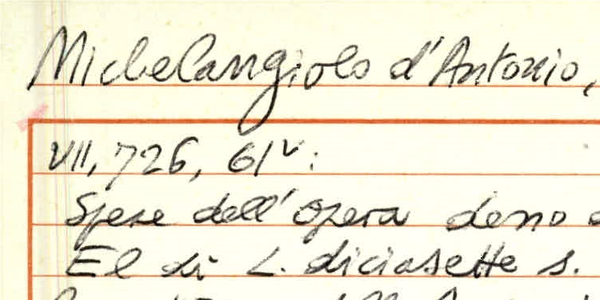 Michelangiolo d'Antonio,
VII, 726, 61v:
Spese dell'opera deno
El di L. diciasette s.